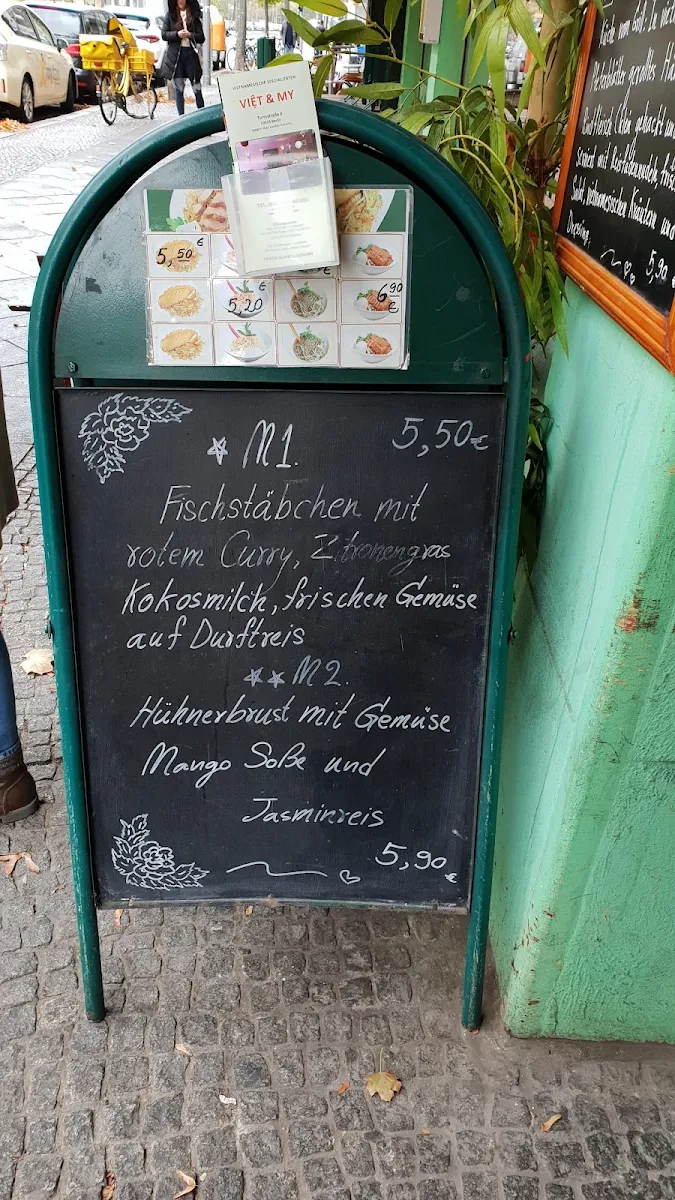 VIETNAMESISCHE SPEZIALITÄTEN
VIỆT & MY
5,50 €
5,20 €
6,90 €
M1. 5,50€
Fischstäbchen mit
rotem Curry, Zitronengras
Kokosmilch, frischen Gemüse
auf Durftreis
M2.
Hühnerbrust mit Gemüse
Mango Soße und
Jasminreis
5,90 €
gerolltes
gehackt
serviert mit
vietnamesischen Kräutern und
Dressing.
5,90